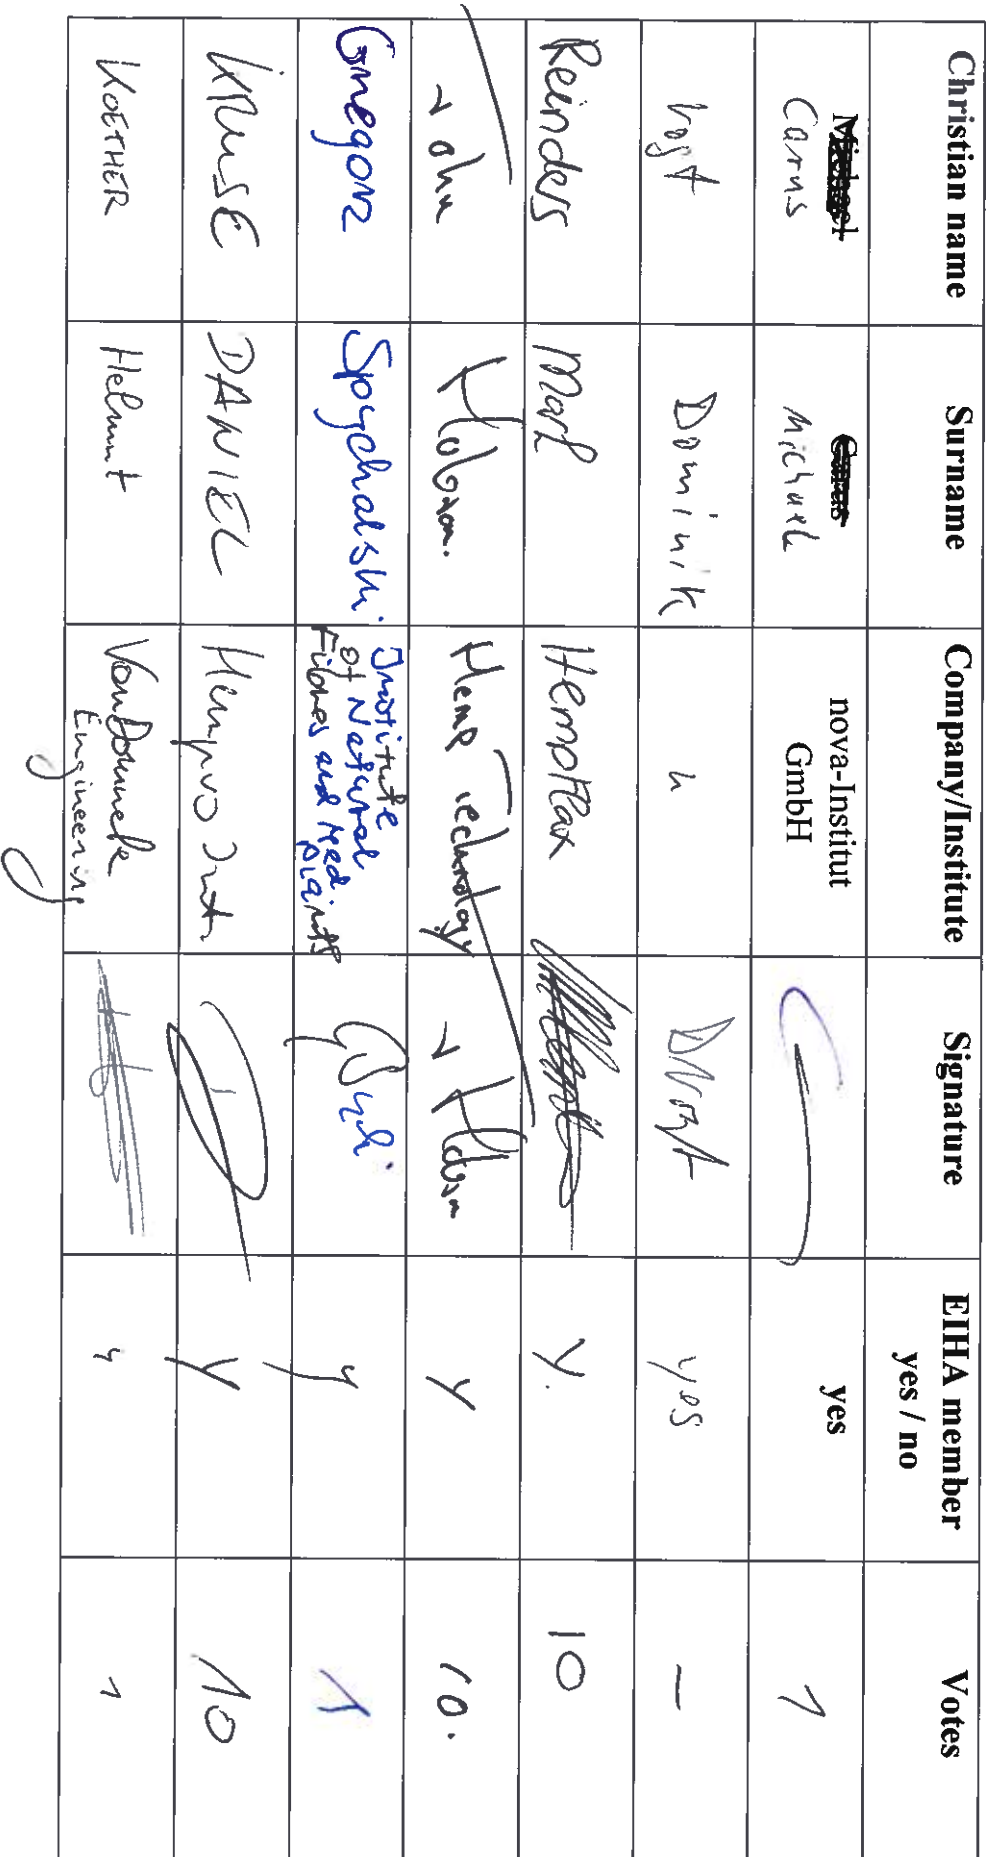 Christian name Surname Company/Institute Signature EIHA member yes / no Votes
Michael Carus
Carus Michael nova-Institut GmbH yes 1
Vogt Dominik " DVogt yes –
Reinders Mark Hempflax y. 10
John Hobson. Hemp Technology J Hobson y 10.
Gregorz Spychalski Institute of Natural Fibres and Med. Plants y 1
KRUSE DANIEL Hempro Int. y 10
KOETHER Helmut VanDommele Engineering y 1